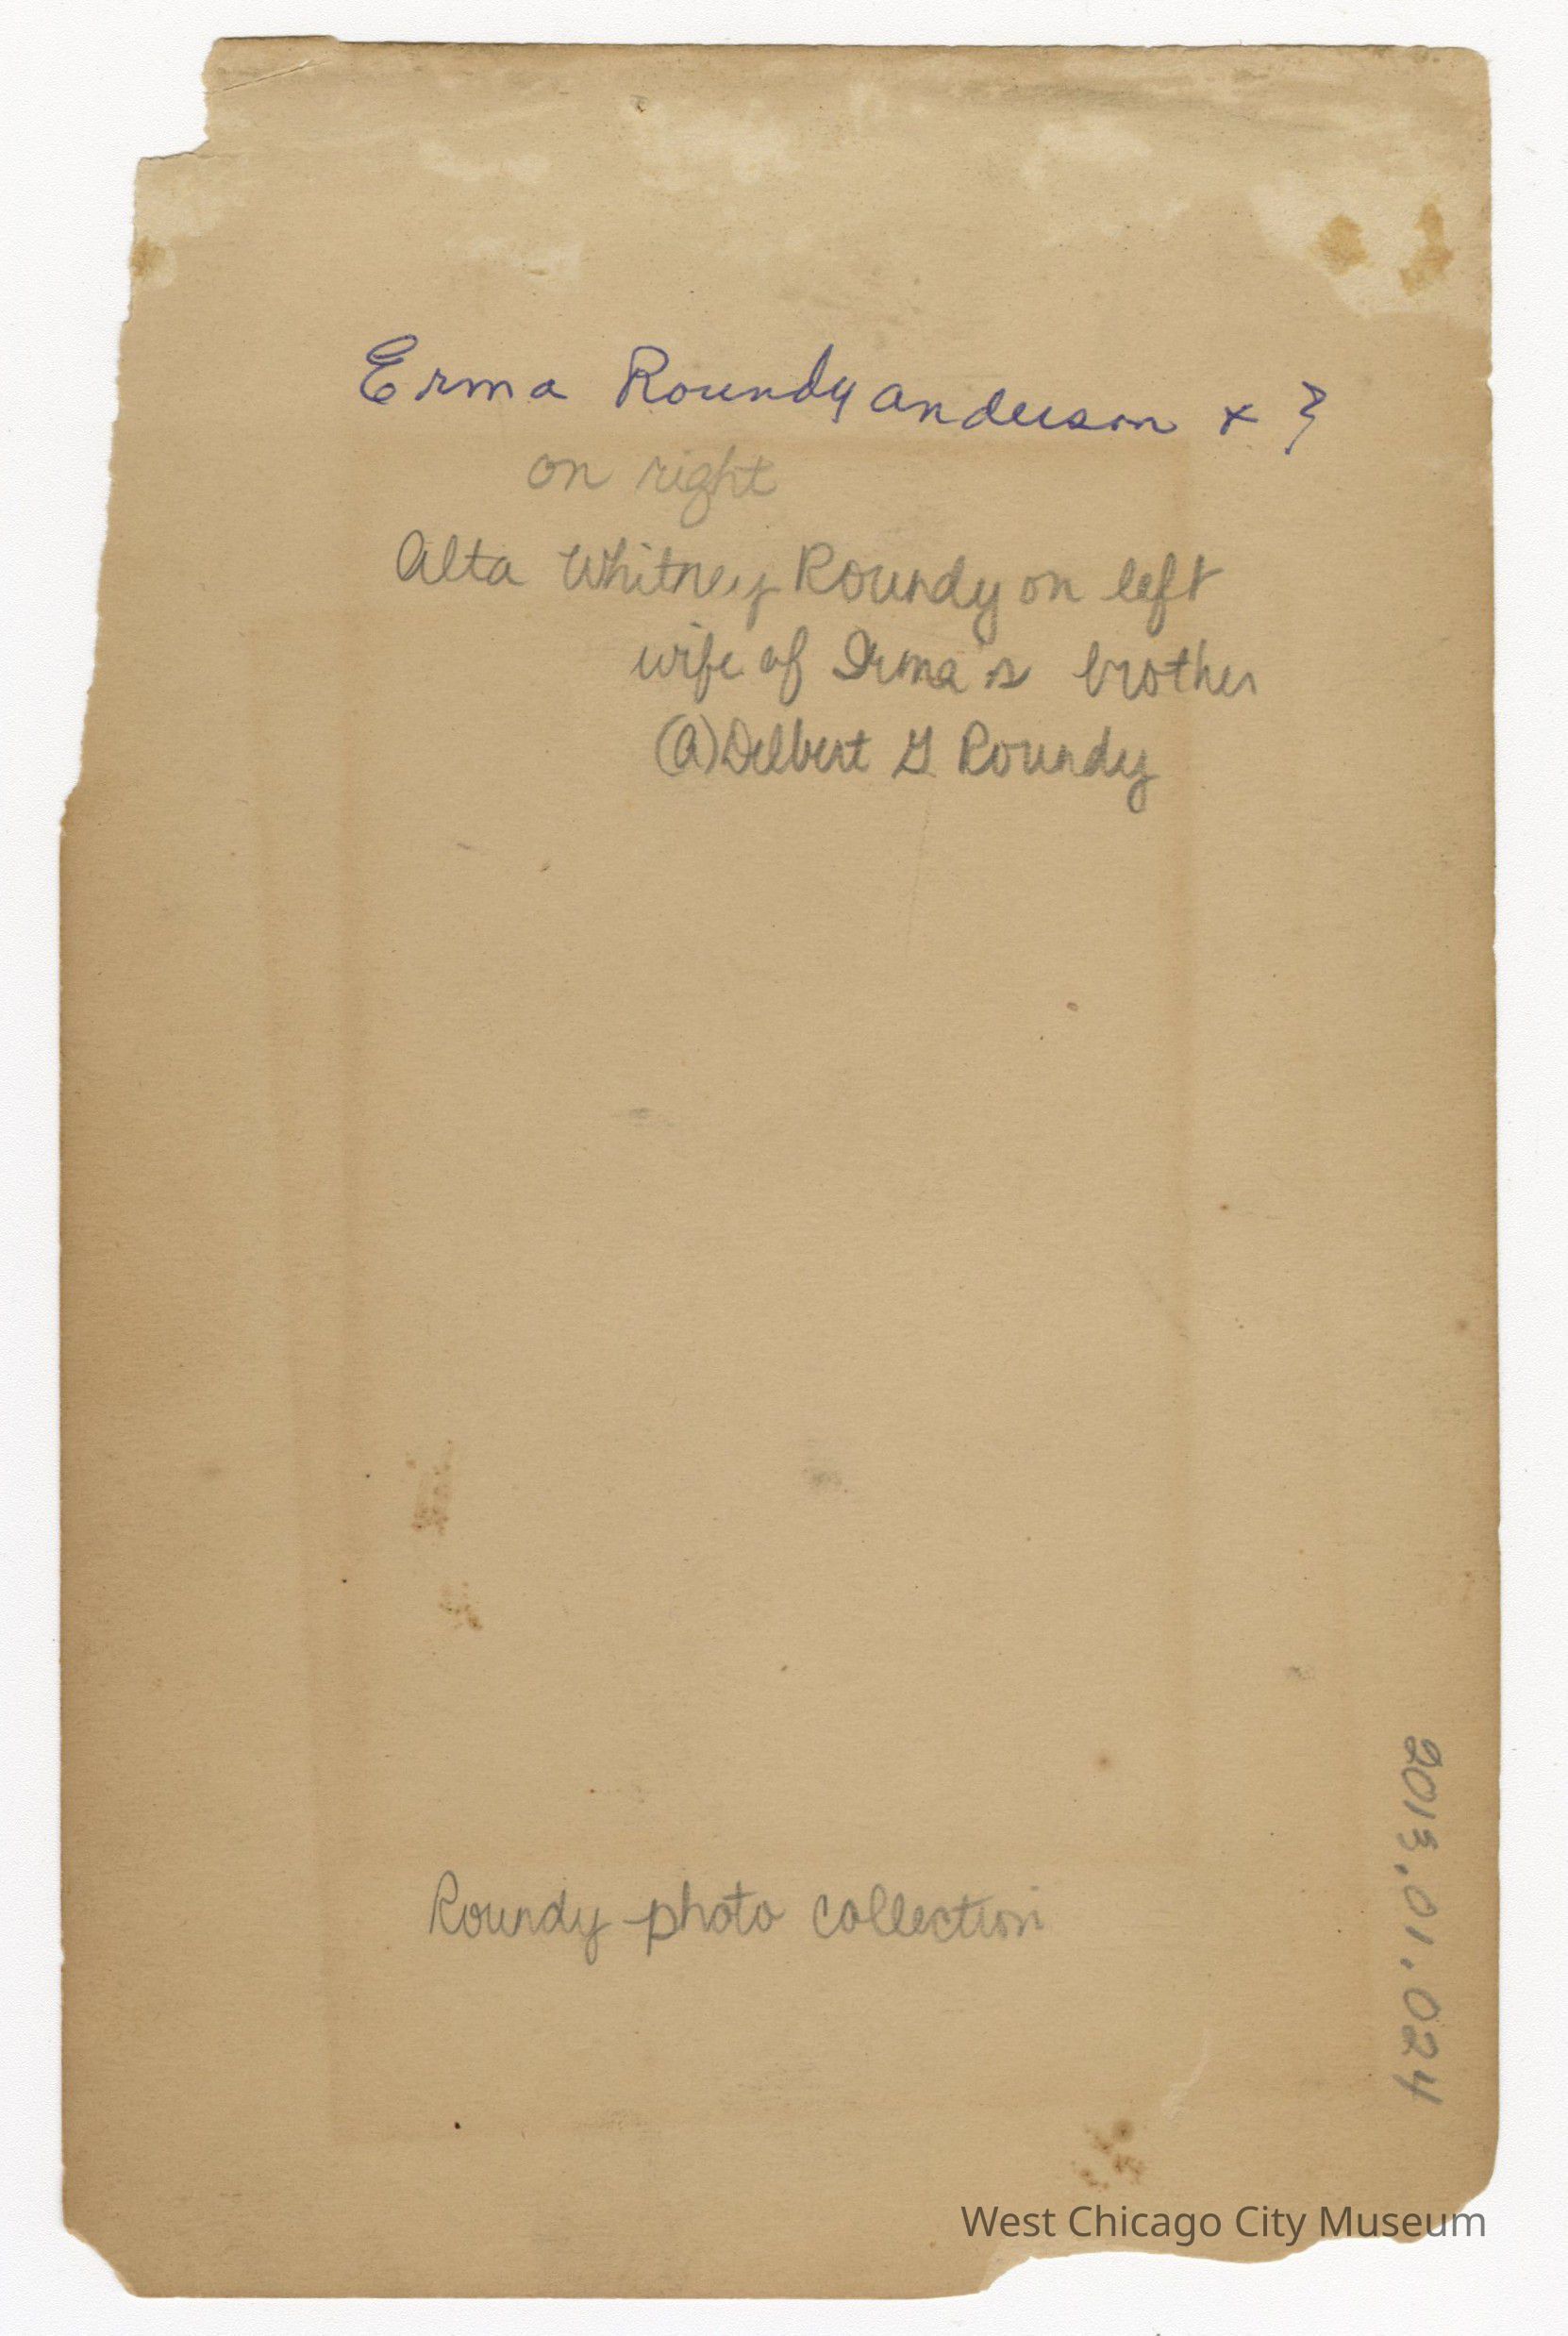 Erma Roundy Anderson + ?
on right
Alta Whitney Roundy on left
wife of Irma's brother
(A) Delbert G Roundy
Roundy photo collection
2013.01.024
West Chicago City Museum